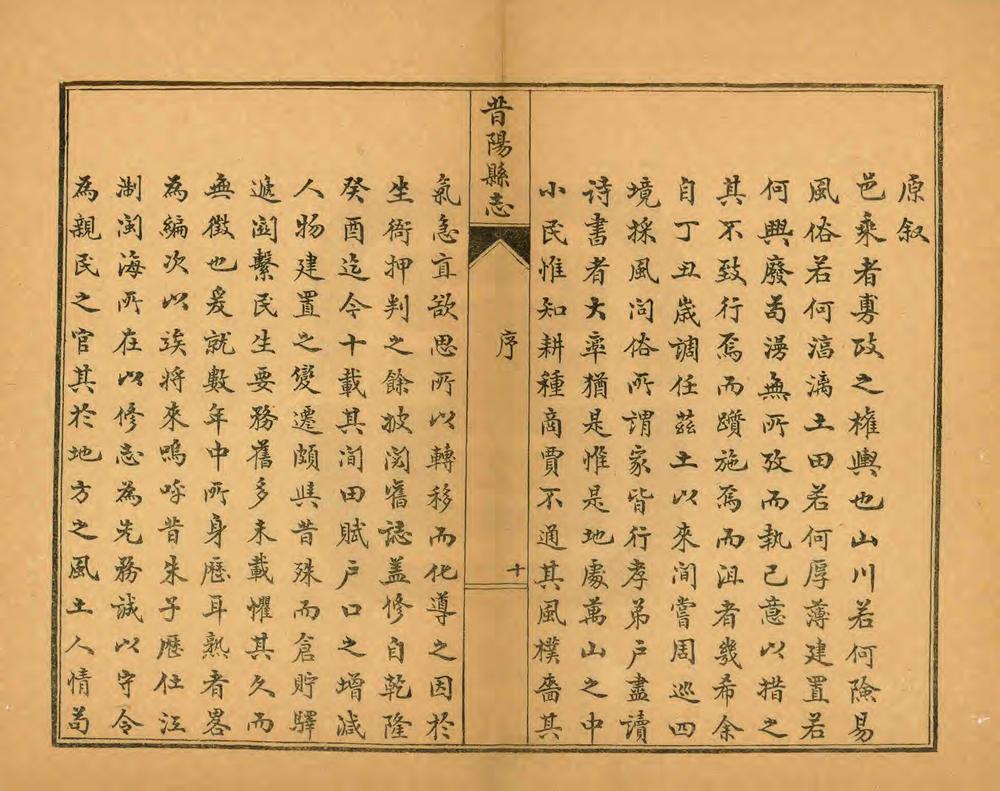 原叙
邑乘者專政之權輿也山川若何險易
風俗若何漓土田若何厚薄建置若
何興廢茍漫無所攷而執己意以措之
其不致行焉而躓施焉而沮者幾希余
自丁丑歲調任茲土以來間嘗周巡四
境採風问俗所謂家皆行孝弟户盡讀
诗書者大率猶是惟是地處萬山之中
小民惟知耕種商賈不通其風樸嗇其
昔陽縣志
序
十
氣急亰欲思所以轉移而化導之因於
坐衙押判之餘披閱舊誌盖修自乾隆
癸酉迄今十載其间田賦户口之增減
人物建置之變遷頗與昔殊而倉貯驛
遞關繫民生要務舊多未載懼其久而
無徵也爰就數年中所身歷耳熟者畧
為編次以俟將來嗚呼昔朱子歷仕江
淛閩海所在以修志為先務誠以守令
為親民之官其於地方之風土人情茍